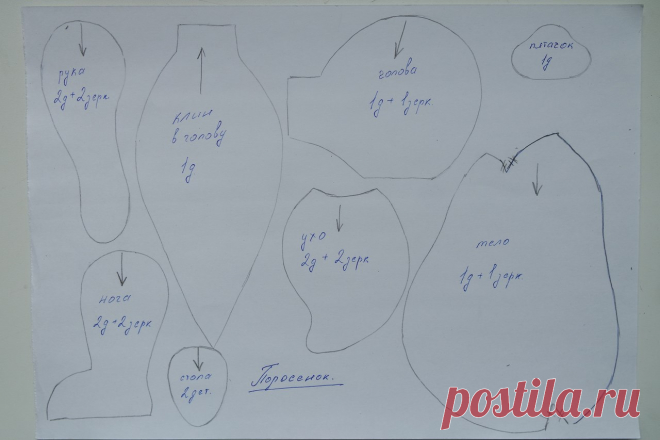 рука
2д + 2зерк
клин
в голову
1д
голова
1д + 1зерк.
пятачек
1д
ухо
2д + 2зерк
тело
1д + 1зерк
нога
2д + 2зерк
стопа
2дет.
Поросенок.
postila.ru